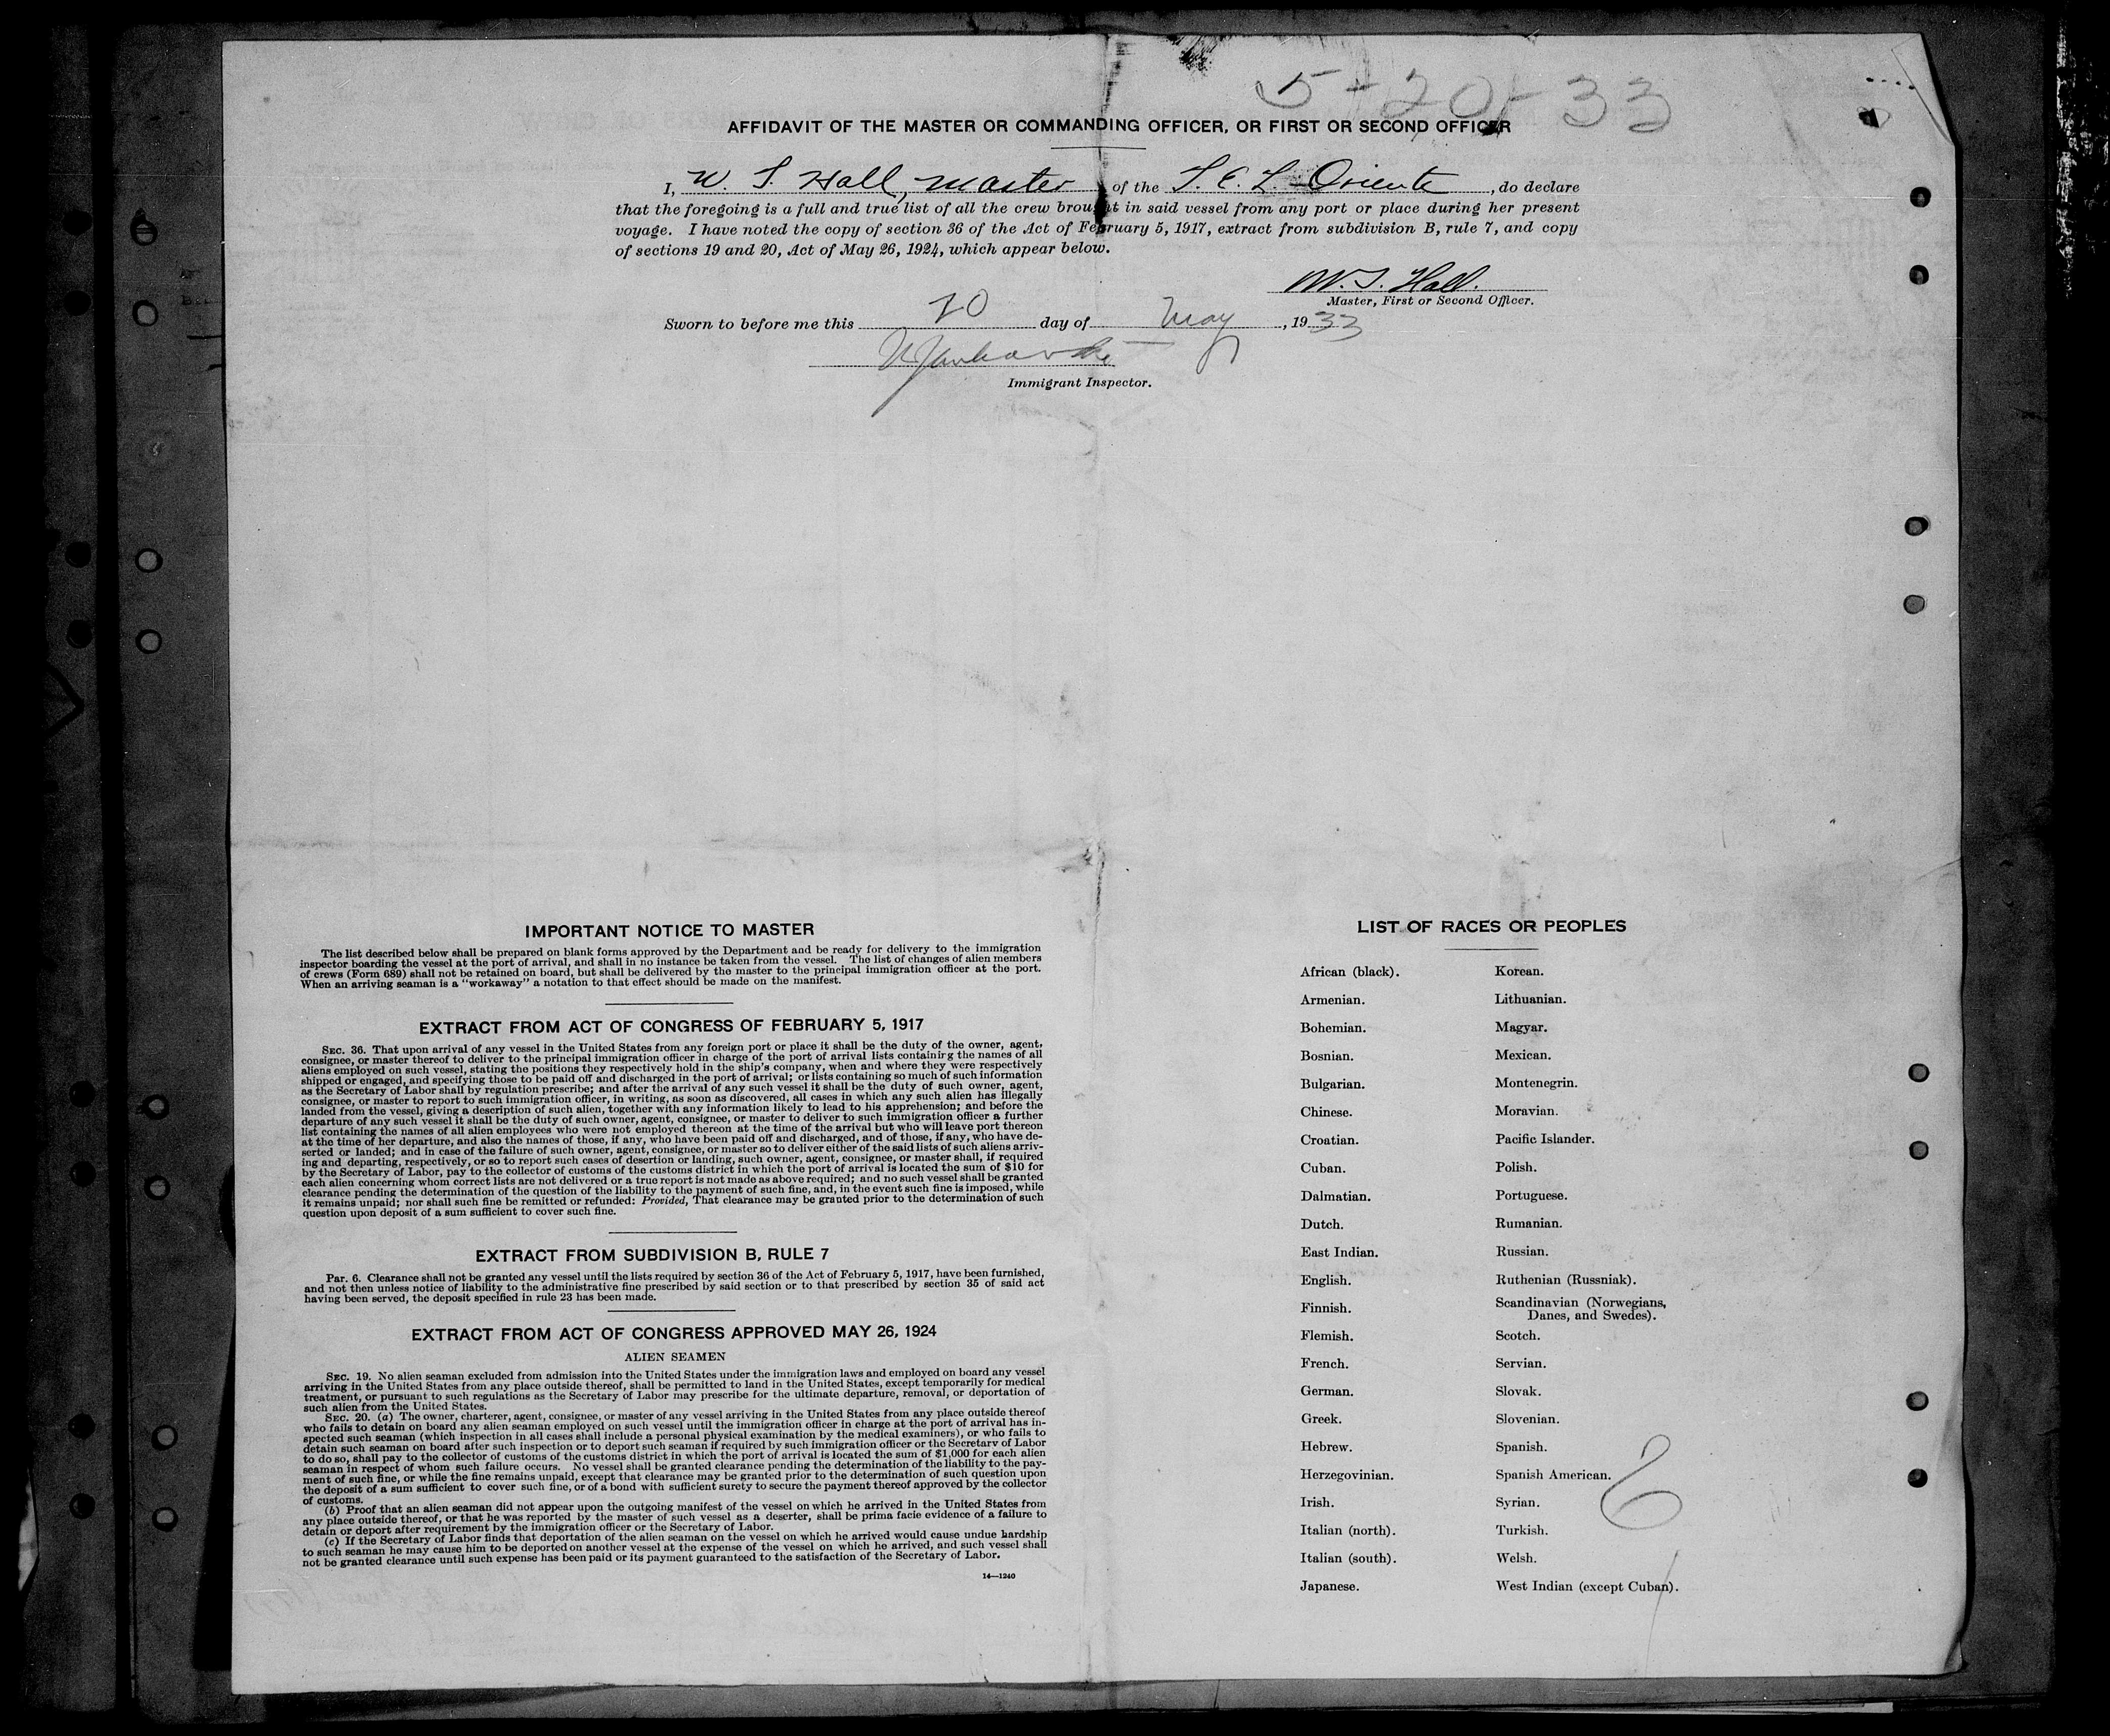 5-20-33
AFFIDAVIT OF THE MASTER OR COMMANDING OFFICER, OR FIRST OR SECOND OFFICER
I, W. S. Hall, Master of the Oriente, do declare
that the foregoing is a full and true list of all the crew brought in said vessel from any port or place during her present
voyage. I have noted the copy of section 36 of the Act of February 5, 1917, extract from subdivision B, rule 7, and copy
of sections 19 and 20, Act of May 26, 1924, which appear below.
W. S. Hall.
Master, First or Second Officer.
Sworn to before me this 20 day of May, 1933
Immigrant Inspector.
IMPORTANT NOTICE TO MASTER
The list described below shall be prepared on blank forms approved by the Department and be ready for delivery to the immigration
inspector boarding the vessel at the port of arrival, and shall in no instance be taken from the vessel. The list of changes of alien members
of crews (Form 689) shall not be retained on board, but shall be delivered by the master to the principal immigration officer at the port.
When an arriving seaman is a "workaway" a notation to that effect should be made on the manifest.
EXTRACT FROM ACT OF CONGRESS OF FEBRUARY 5, 1917
SEC. 36. That upon arrival of any vessel in the United States from any foreign port or place it shall be the duty of the owner, agent,
consignee, or master thereof to deliver to the principal immigration officer in charge of the port of arrival lists containing the names of all
aliens employed on such vessel, stating the positions they respectively hold in the ship's company, when and where they were respectively
shipped or engaged, and specifying those to be paid off and discharged in the port of arrival; or lists containing so much of such information
as the Secretary of Labor shall by regulation prescribe; and after the arrival of any such vessel it shall be the duty of such owner, agent,
consignee, or master to report to such immigration officer, in writing, as soon as discovered, all cases in which any such alien has illegally
landed from the vessel, giving a description of such alien, together with any information likely to lead to his apprehension; and before the
departure of any such vessel it shall be the duty of such owner, agent, consignee, or master to deliver to such immigration officer a further
list containing the names of all alien employees who were not employed thereon at the time of the arrival but who will leave port thereon
at the time of her departure, and also the names of those, if any, who have been paid off and discharged, and of those, if any, who have de-
serted or landed; and in case of the failure of such owner, agent, consignee, or master so to deliver either of the said lists of such aliens arriv-
ing and departing, respectively, or so to report such cases of desertion or landing, such owner, agent, consignee, or master shall, if required
by the Secretary of Labor, pay to the collector of customs of the customs district in which the port of arrival is located the sum of $10 for
each alien concerning whom correct lists are not delivered or a true report is not made as above required; and no such vessel shall be granted
clearance pending the determination of the question of the liability to the payment of such fine, and, in the event such fine is imposed, while
it remains unpaid; nor shall such fine be remitted or refunded: Provided, That clearance may be granted prior to the determination of such
question upon deposit of a sum sufficient to cover such fine.
EXTRACT FROM SUBDIVISION B, RULE 7
Par. 6. Clearance shall not be granted any vessel until the lists required by section 36 of the Act of February 5, 1917, have been furnished,
and not then unless notice of liability to the administrative fine prescribed by said section or to that prescribed by section 35 of said act
having been served, the deposit specified in rule 23 has been made.
EXTRACT FROM ACT OF CONGRESS APPROVED MAY 26, 1924
ALIEN SEAMEN
SEC. 19. No alien seaman excluded from admission into the United States under the immigration laws and employed on board any vessel
arriving in the United States from any place outside thereof, shall be permitted to land in the United States, except temporarily for medical
treatment, or pursuant to such regulations as the Secretary of Labor may prescribe for the ultimate departure, removal, or deportation of
such alien from the United States.
SEC. 20. (a) The owner, charterer, agent, consignee, or master of any vessel arriving in the United States from any place outside thereof
who fails to detain on board any alien seaman employed on such vessel until the immigration officer in charge at the port of arrival has in-
spected such seaman (which inspection in all cases shall include a personal physical examination by the medical examiners), or who fails to
detain such seaman on board after such inspection or to deport such seaman if required by such immigration officer or the Secretary of Labor
to do so, shall pay to the collector of customs of the customs district in which the port of arrival is located the sum of $1,000 for each alien
seaman in respect of whom such failure occurs. No vessel shall be granted clearance pending the determination of the liability to the pay-
ment of such fine, or while the fine remains unpaid, except that clearance may be granted prior to the determination of such question upon
the deposit of a sum sufficient to cover such fine, or of a bond with sufficient surety to secure the payment thereof approved by the collector
of customs.
(b) Proof that an alien seaman did not appear upon the outgoing manifest of the vessel on which he arrived in the United States from
any place outside thereof, or that he was reported by the master of such vessel as a deserter, shall be prima facie evidence of a failure to
detain or deport after requirement by the immigration officer or the Secretary of Labor.
(c) If the Secretary of Labor finds that deportation of the alien seaman on the vessel on which he arrived would cause undue hardship
to such seaman he may cause him to be deported on another vessel at the expense of the vessel on which he arrived, and such vessel shall
not be granted clearance until such expense has been paid or its payment guaranteed to the satisfaction of the Secretary of Labor.
14—1240
LIST OF RACES OR PEOPLES
African (black).
Armenian.
Bohemian.
Bosnian.
Bulgarian.
Chinese.
Croatian.
Cuban.
Dalmatian.
Dutch.
East Indian.
English.
Finnish.
Flemish.
French.
German.
Greek.
Hebrew.
Herzegovinian.
Irish.
Italian (north).
Italian (south).
Japanese.
Korean.
Lithuanian.
Magyar.
Mexican.
Montenegrin.
Moravian.
Pacific Islander.
Polish.
Portuguese.
Rumanian.
Russian.
Ruthenian (Russniak).
Scandinavian (Norwegians,
Danes, and Swedes).
Scotch.
Servian.
Slovak.
Slovenian.
Spanish.
Spanish American.
Syrian.
Turkish.
Welsh.
West Indian (except Cuban).
6